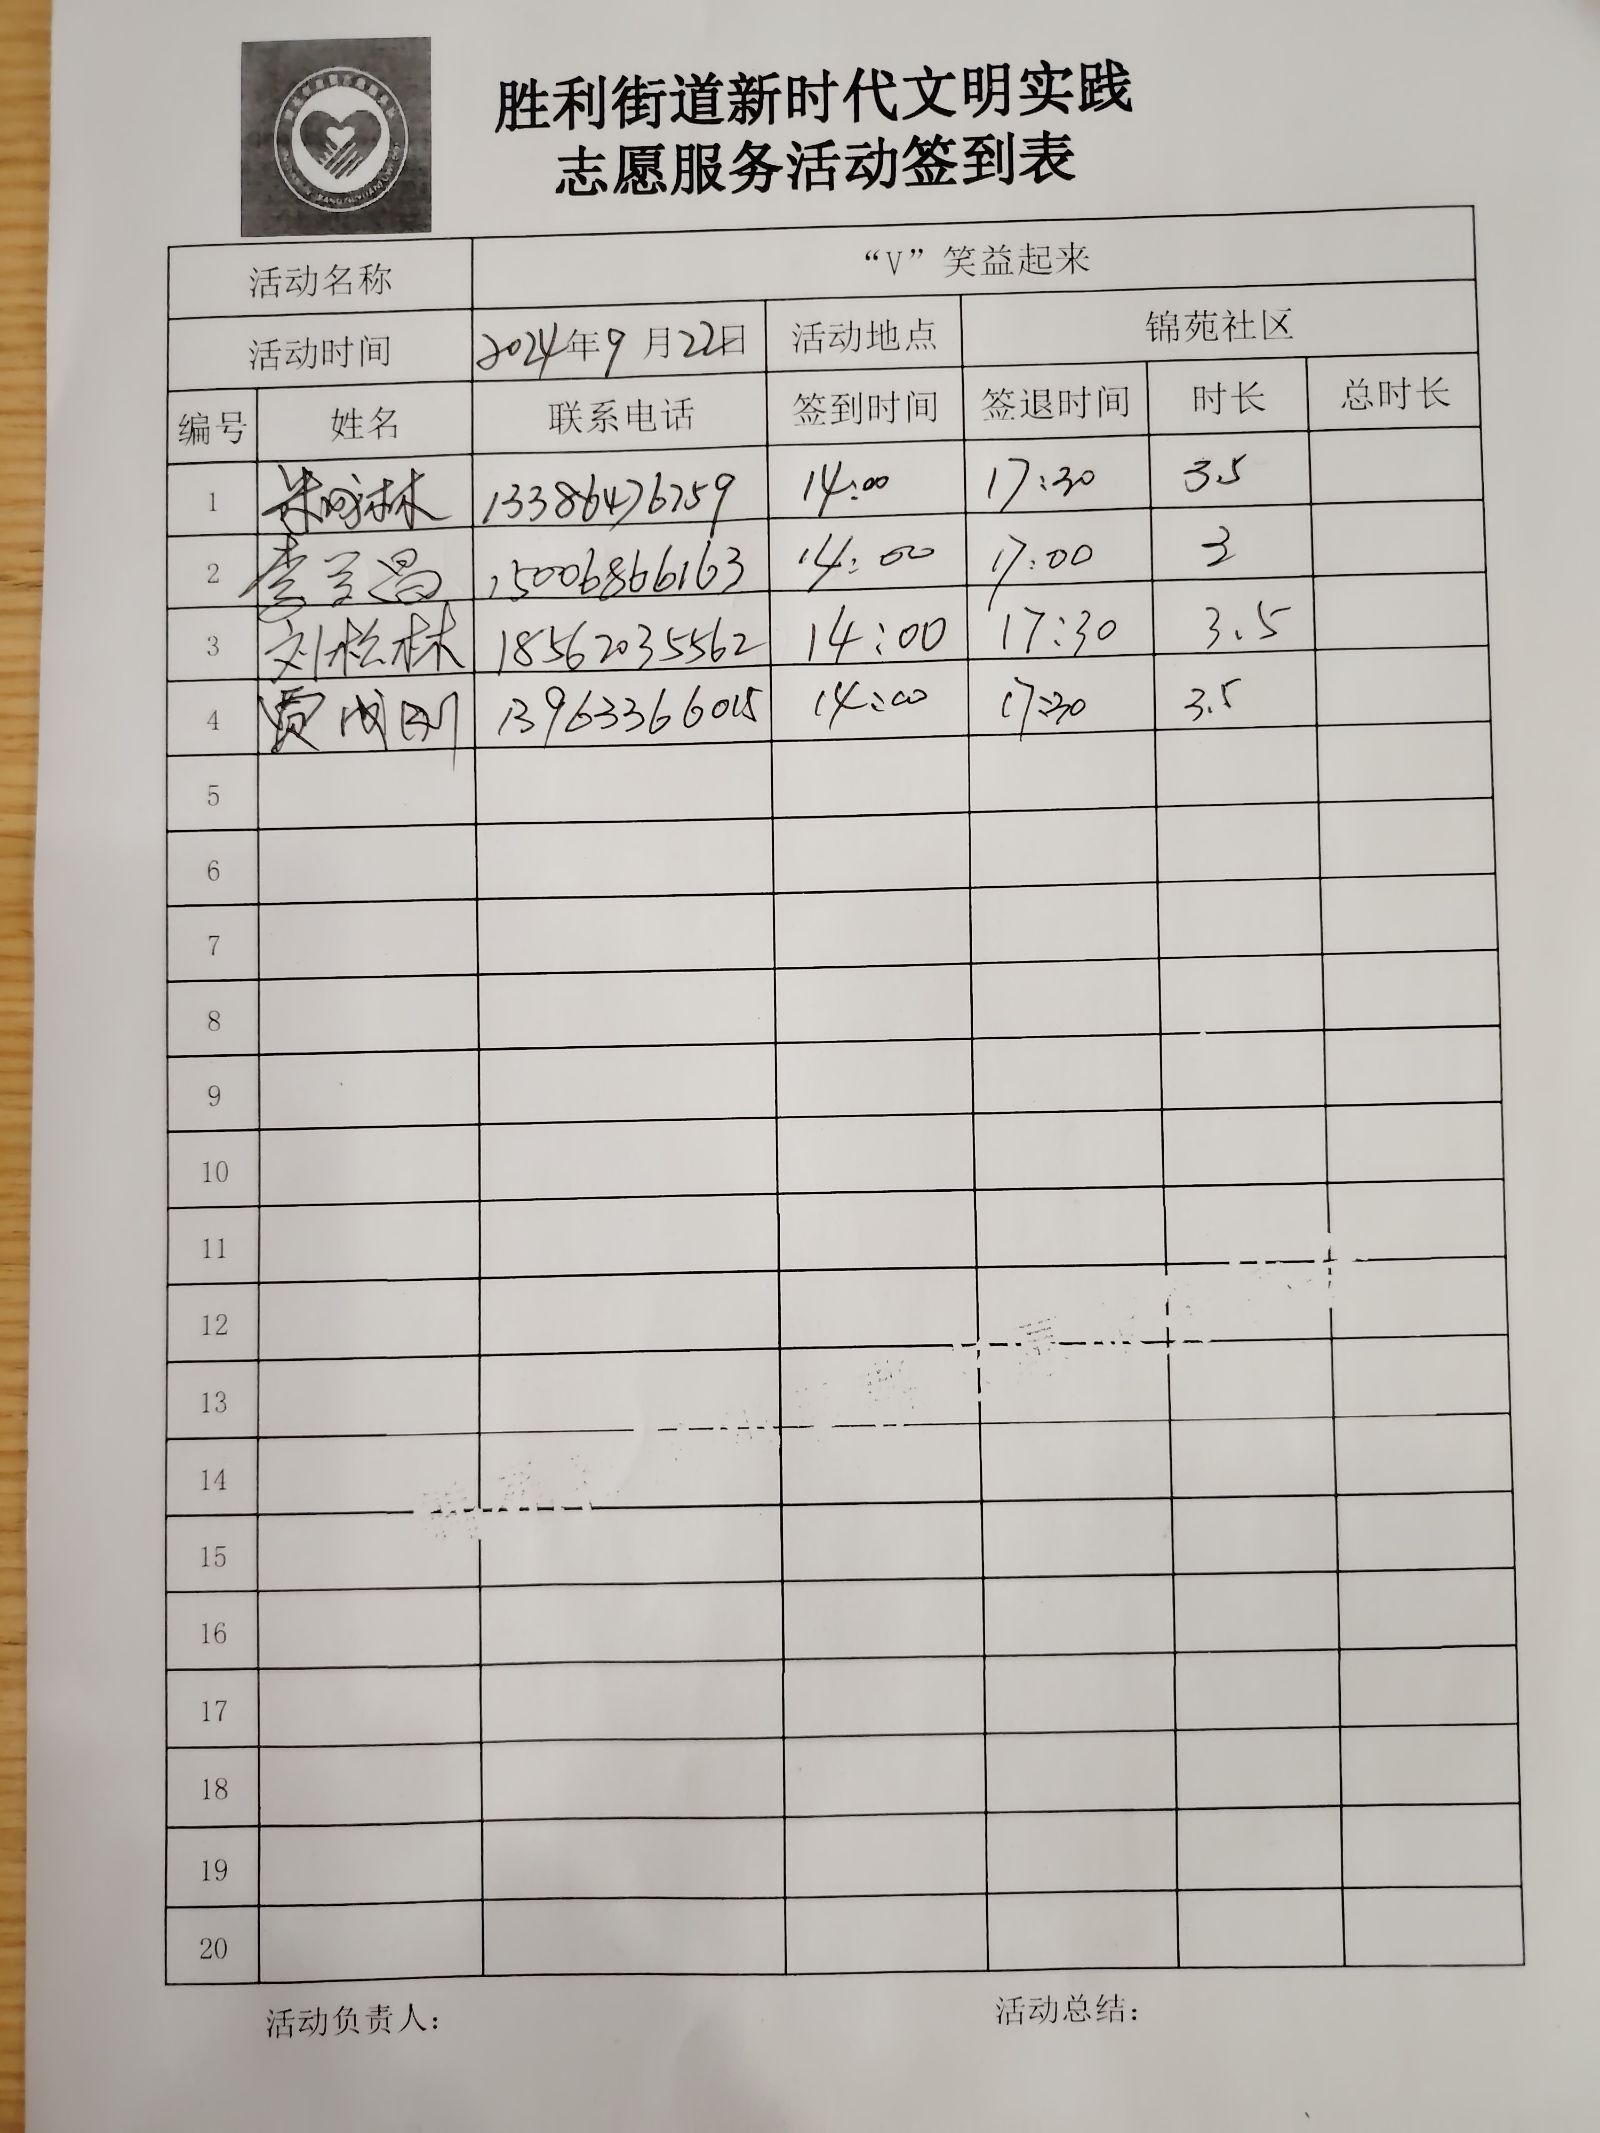 胜利街道新时代文明实践
志愿服务活动签到表
活动名称 “V”笑益起来
活动时间 2024年9月22日 活动地点 锦苑社区
编号 姓名 联系电话 签到时间 签退时间 时长 总时长
1 林 13386476759 14:00 17:30 3.5
2 李兰昌 15006866163 14:00 17:00 3
3 刘松林 18562035562 14:00 17:30 3.5
4 贾成刚 13963366015 14:00 17:30 3.5
5
6
7
8
9
10
11
12
13
14
15
16
17
18
19
20
活动负责人： 活动总结：